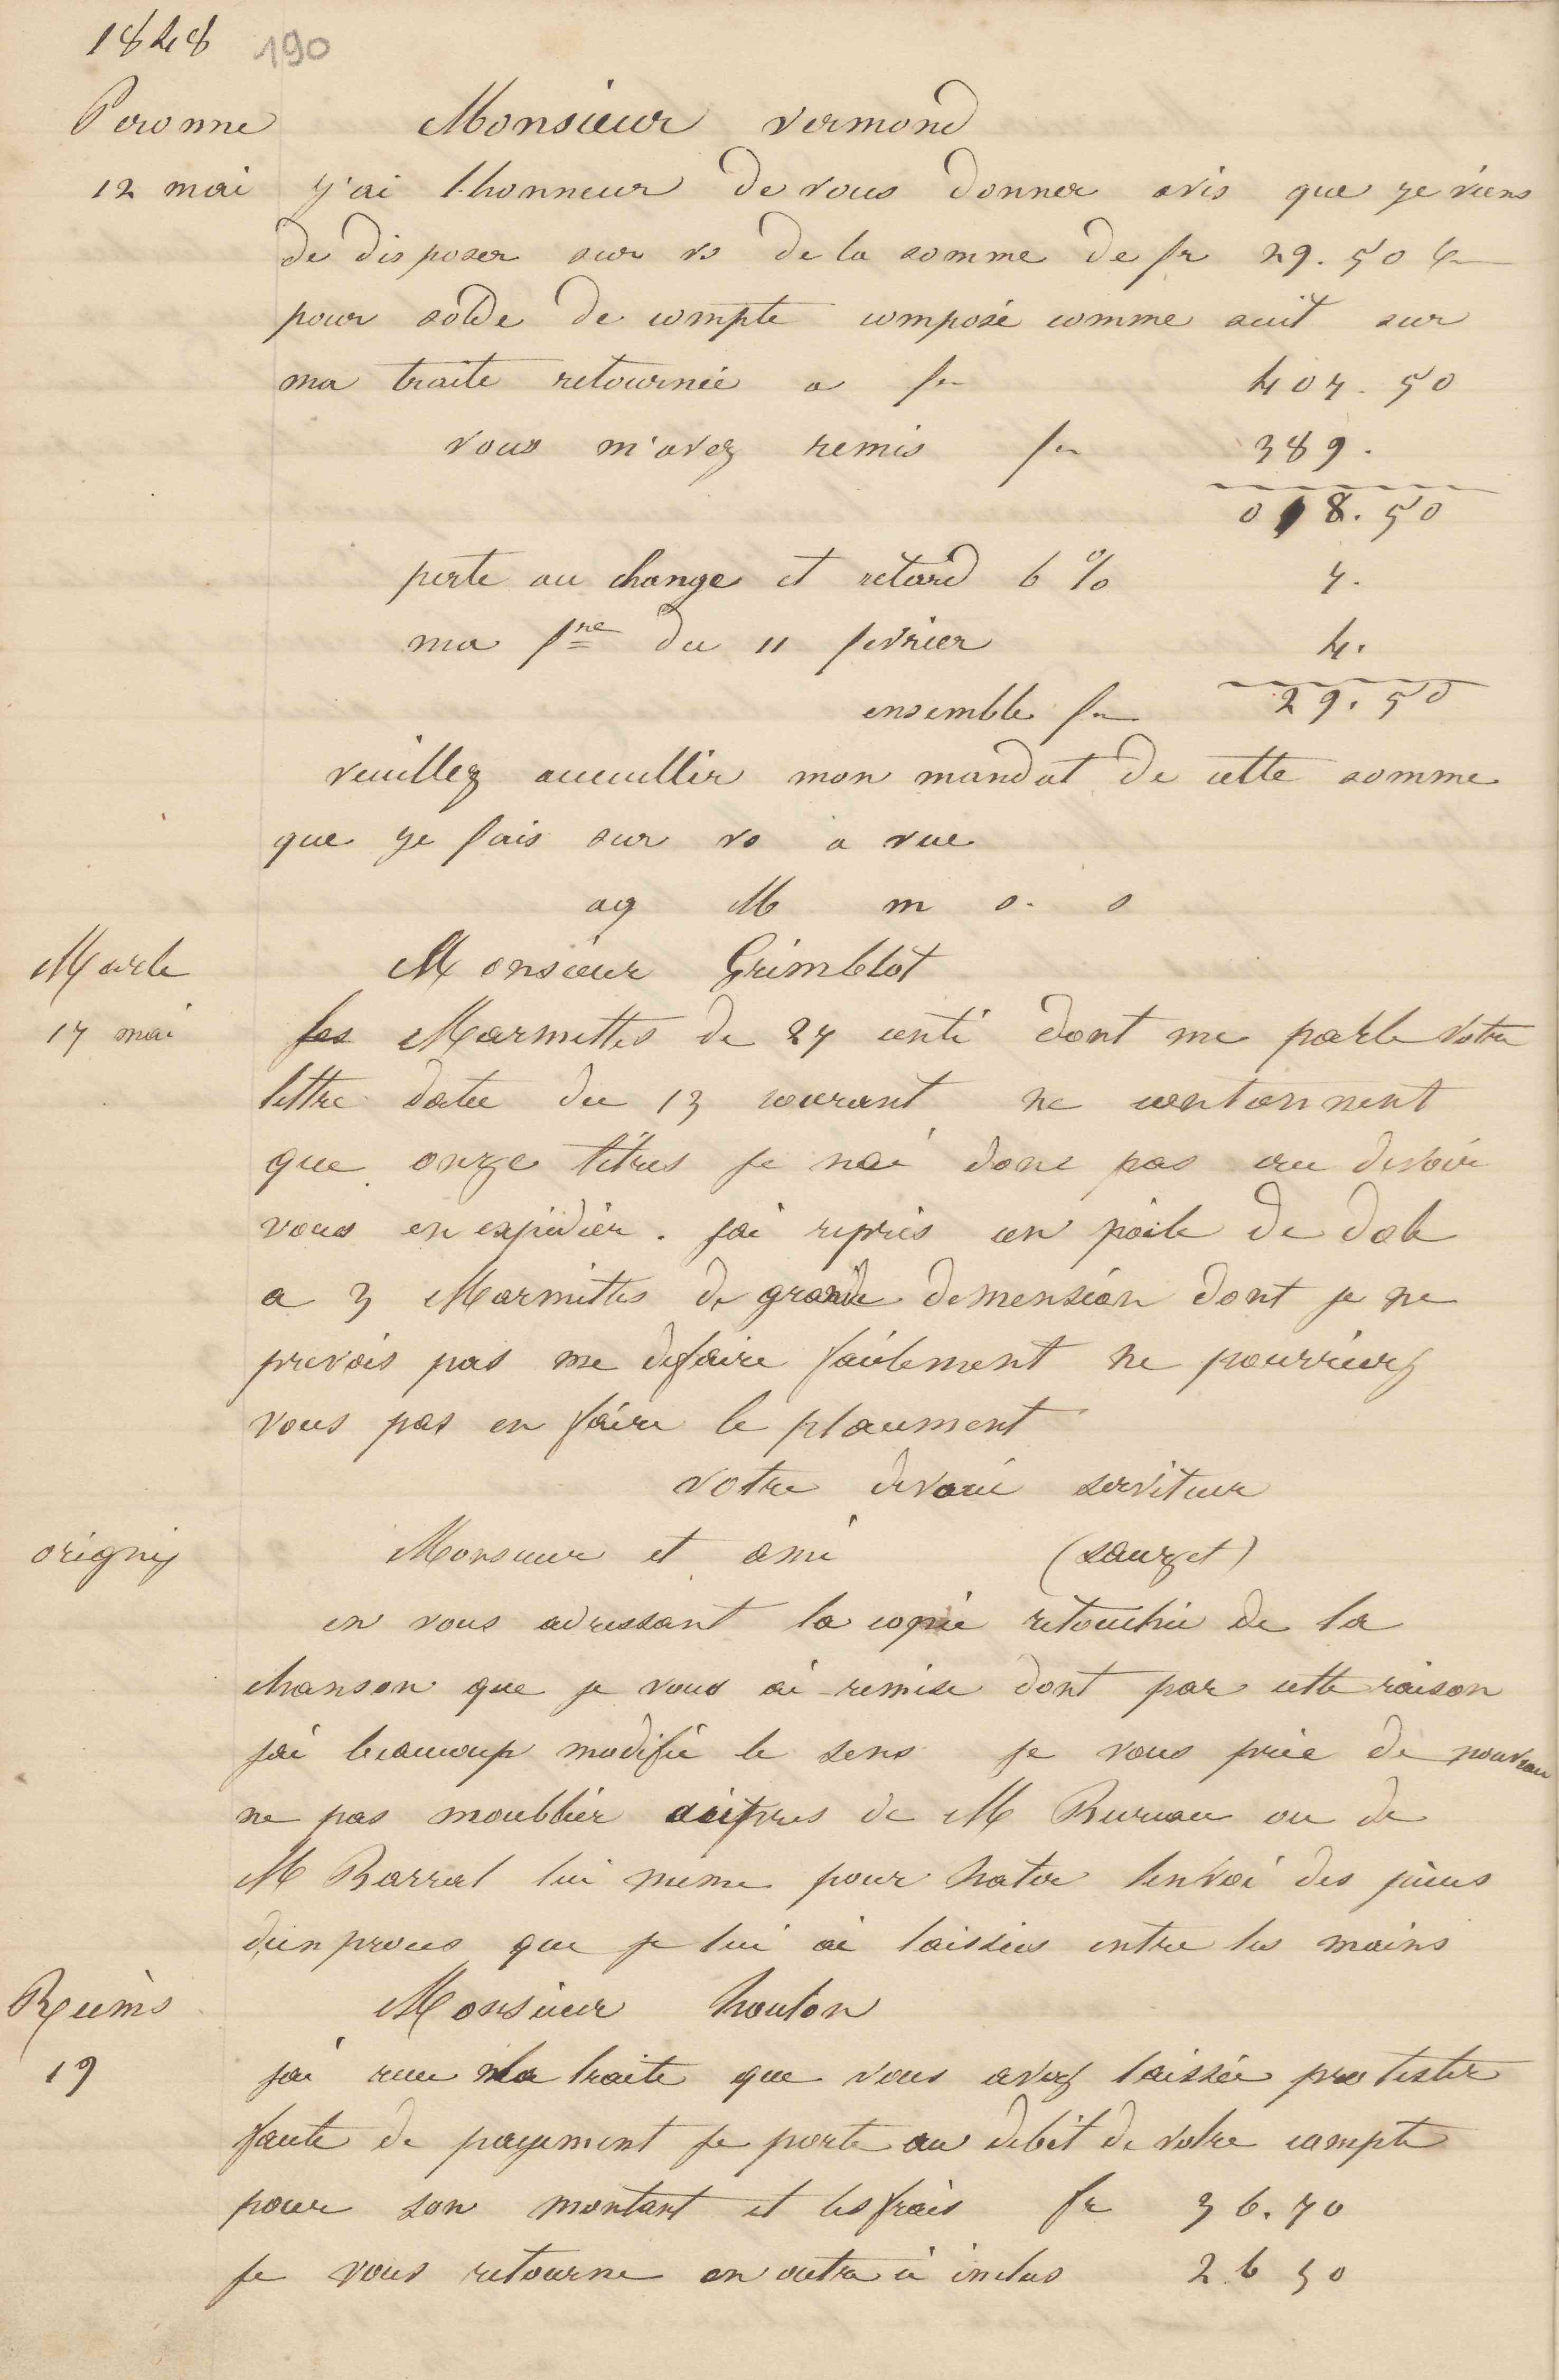 1848 190
Peronne Monsieur vermond
12 mai j'ai l'honneur de vous donner avis que je viens
de disposer sur vs de la somme de fr 29.50 c
pour solde de compte composé comme suit sur
ma traite retournée a fr 407.50
vous m'avez remis fr 389.
018.50
perte au change et retard 6 % 7.
ma fre du 11 fevrier 4.
ensemble fr 29.50
veuillez accueillir mon mandat de cette somme
que je fais sur vs a vue
ag M m s. s
Marle Monsieur Grimblot
17 mai les Marmittes de 27 centi dont me parle votre
lettre datée du 13 courant ne contiennent
que onze litres je nai donc pas cru devoir
vous en expédier. jai repris un poile de dole
a 3 Marmittes de grande demension dont je ne
prevois pas me defaire facilement ne pourriez
vous pas en faire le placement
votre devoué serviteur
origny Monsieur et ami (sauzet)
en vous adressant la copie retouchée de la
chanson que je vous ai remise dont par cette raison
jai beaucoup modifié le sens je vous prie de nouveau
ne pas moublier auprès de M Bureau ou de
M Barral lui meme pour hater lenvoi des pièces
dun procès que je lui ai laissées entre les mains
Reims Monsieur houlon
19 jai recu ma traite que vous avez laissée protester
faute de payement je porte au debit de votre compte
pour son montant et les frais fr 36.70
je vous retourne en outre ci inclus 26 50